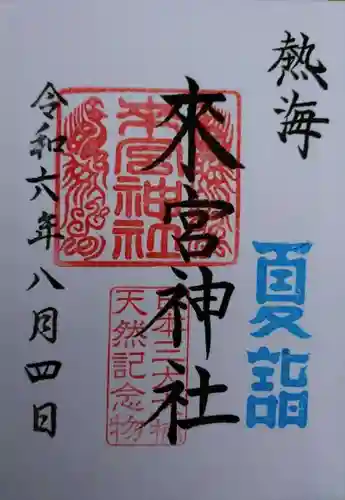 熱海
夏詣
來宮神社
來宮神社
天然記念物
令和六年八月四日